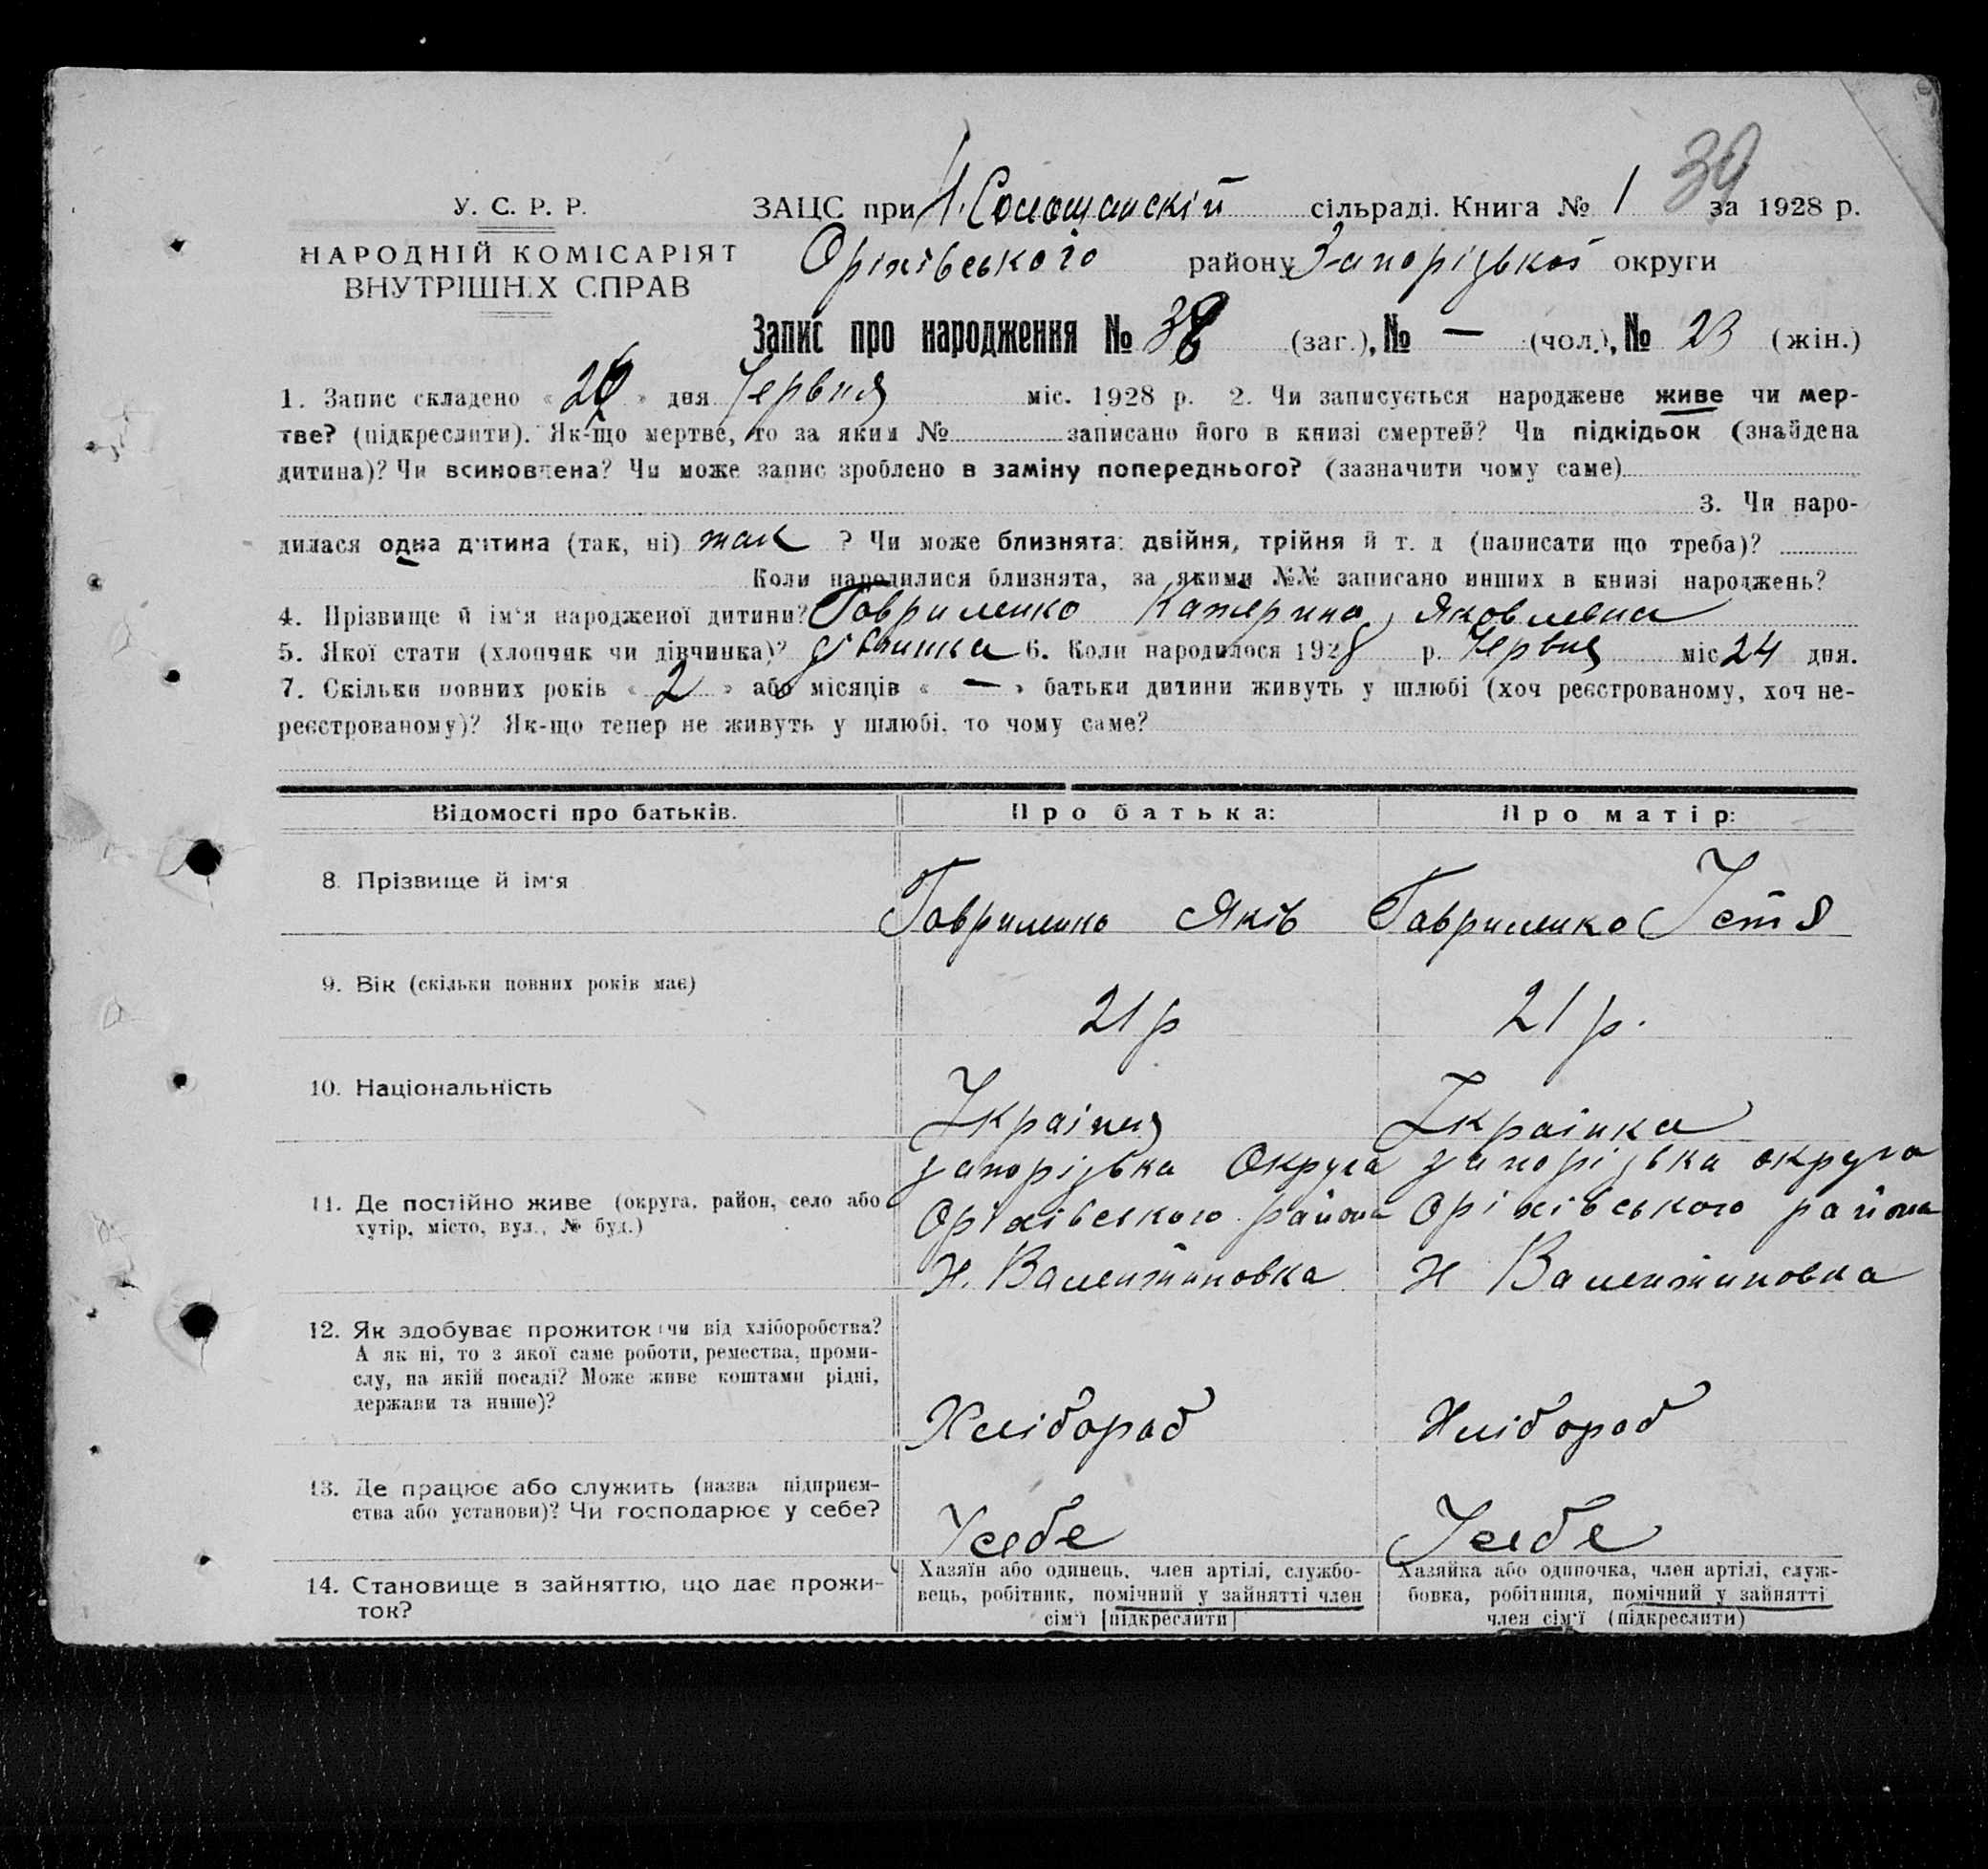 39
У. С. Р. Р. ЗАЦС при сільраді. Книга № 1 за 1928 р.
НАРОДНІЙ КОМІСАРІЯТ Оріхівського району Запоріцької округи
ВНУТРІШНІХ СПРАВ
Запис про народження № 38 (заг.), № — (чол.), № 23 (жін.)
1. Запис складено « » дня Червня міс. 1928 р. 2. Чи записується народжене живе чи мер-
тве? (підкреслити). Як-що мертве, то за яким № записано його в книзі смертей? Чи підкідьок (знайдена
дитина)? Чи всиновлена? Чи може запис зроблено в заміну попереднього? (зазначити чому саме)
3. Чи наро-
дилася одна дитина (так, ні) так ? Чи може близнята: двійня, трійня й т. д (написати що треба)?
Коли народилися близнята, за якими №№ записано инших в книзі народжень?
4. Прізвище й ім'я народженої дитини? Гавриленко Катерина Яковлевна
5. Якої стати (хлопчик чи дівчинка)? дівчинка 6. Коли народилося 1928 р. Червня міс 24 дня.
7. Скільки повних років « 2 » або місяців « — » батьки дитини живуть у шлюбі (хоч реєстрованому, хоч не-
реєстрованому)? Як-що тепер не живуть у шлюбі, то чому саме?
Відомості про батьків. Про батька: Про матір:
8. Прізвище й ім'я Гавриленко Яків Гавриленко
9. Вік (скільки повних років має) 21 р 21 р.
10. Національність Українка
11. Де постійно живе (округа, район, село або хутір, місто, вул., № буд.)
Запоріцька Округа Запоріцька округа
Оріхівського района Оріхівського района
Н. Валентиновка Н Валентиновка
12. Як здобуває прожиток (чи від хліборобства?
А як ні, то з якої саме роботи, ремества, проми-
слу, на якій посаді? Може живе коштами рідні,
держави та инше)?
Хлібороб Хлібороб
13. Де працює або служить (назва підприєм-
ства або установи)? Чи господарює у себе?
У себе У себе
14. Становище в зайняттю, що дає прожи-
ток?
Хазяїн або одинець, член артілі, службо-
вець, робітник, помічний у зайнятті член
сім'ї [підкреслити]
Хазяйка або одиночка, член артілі, служ-
бовка, робітниця, помічний у зайнятті
член сім'ї (підкреслити)